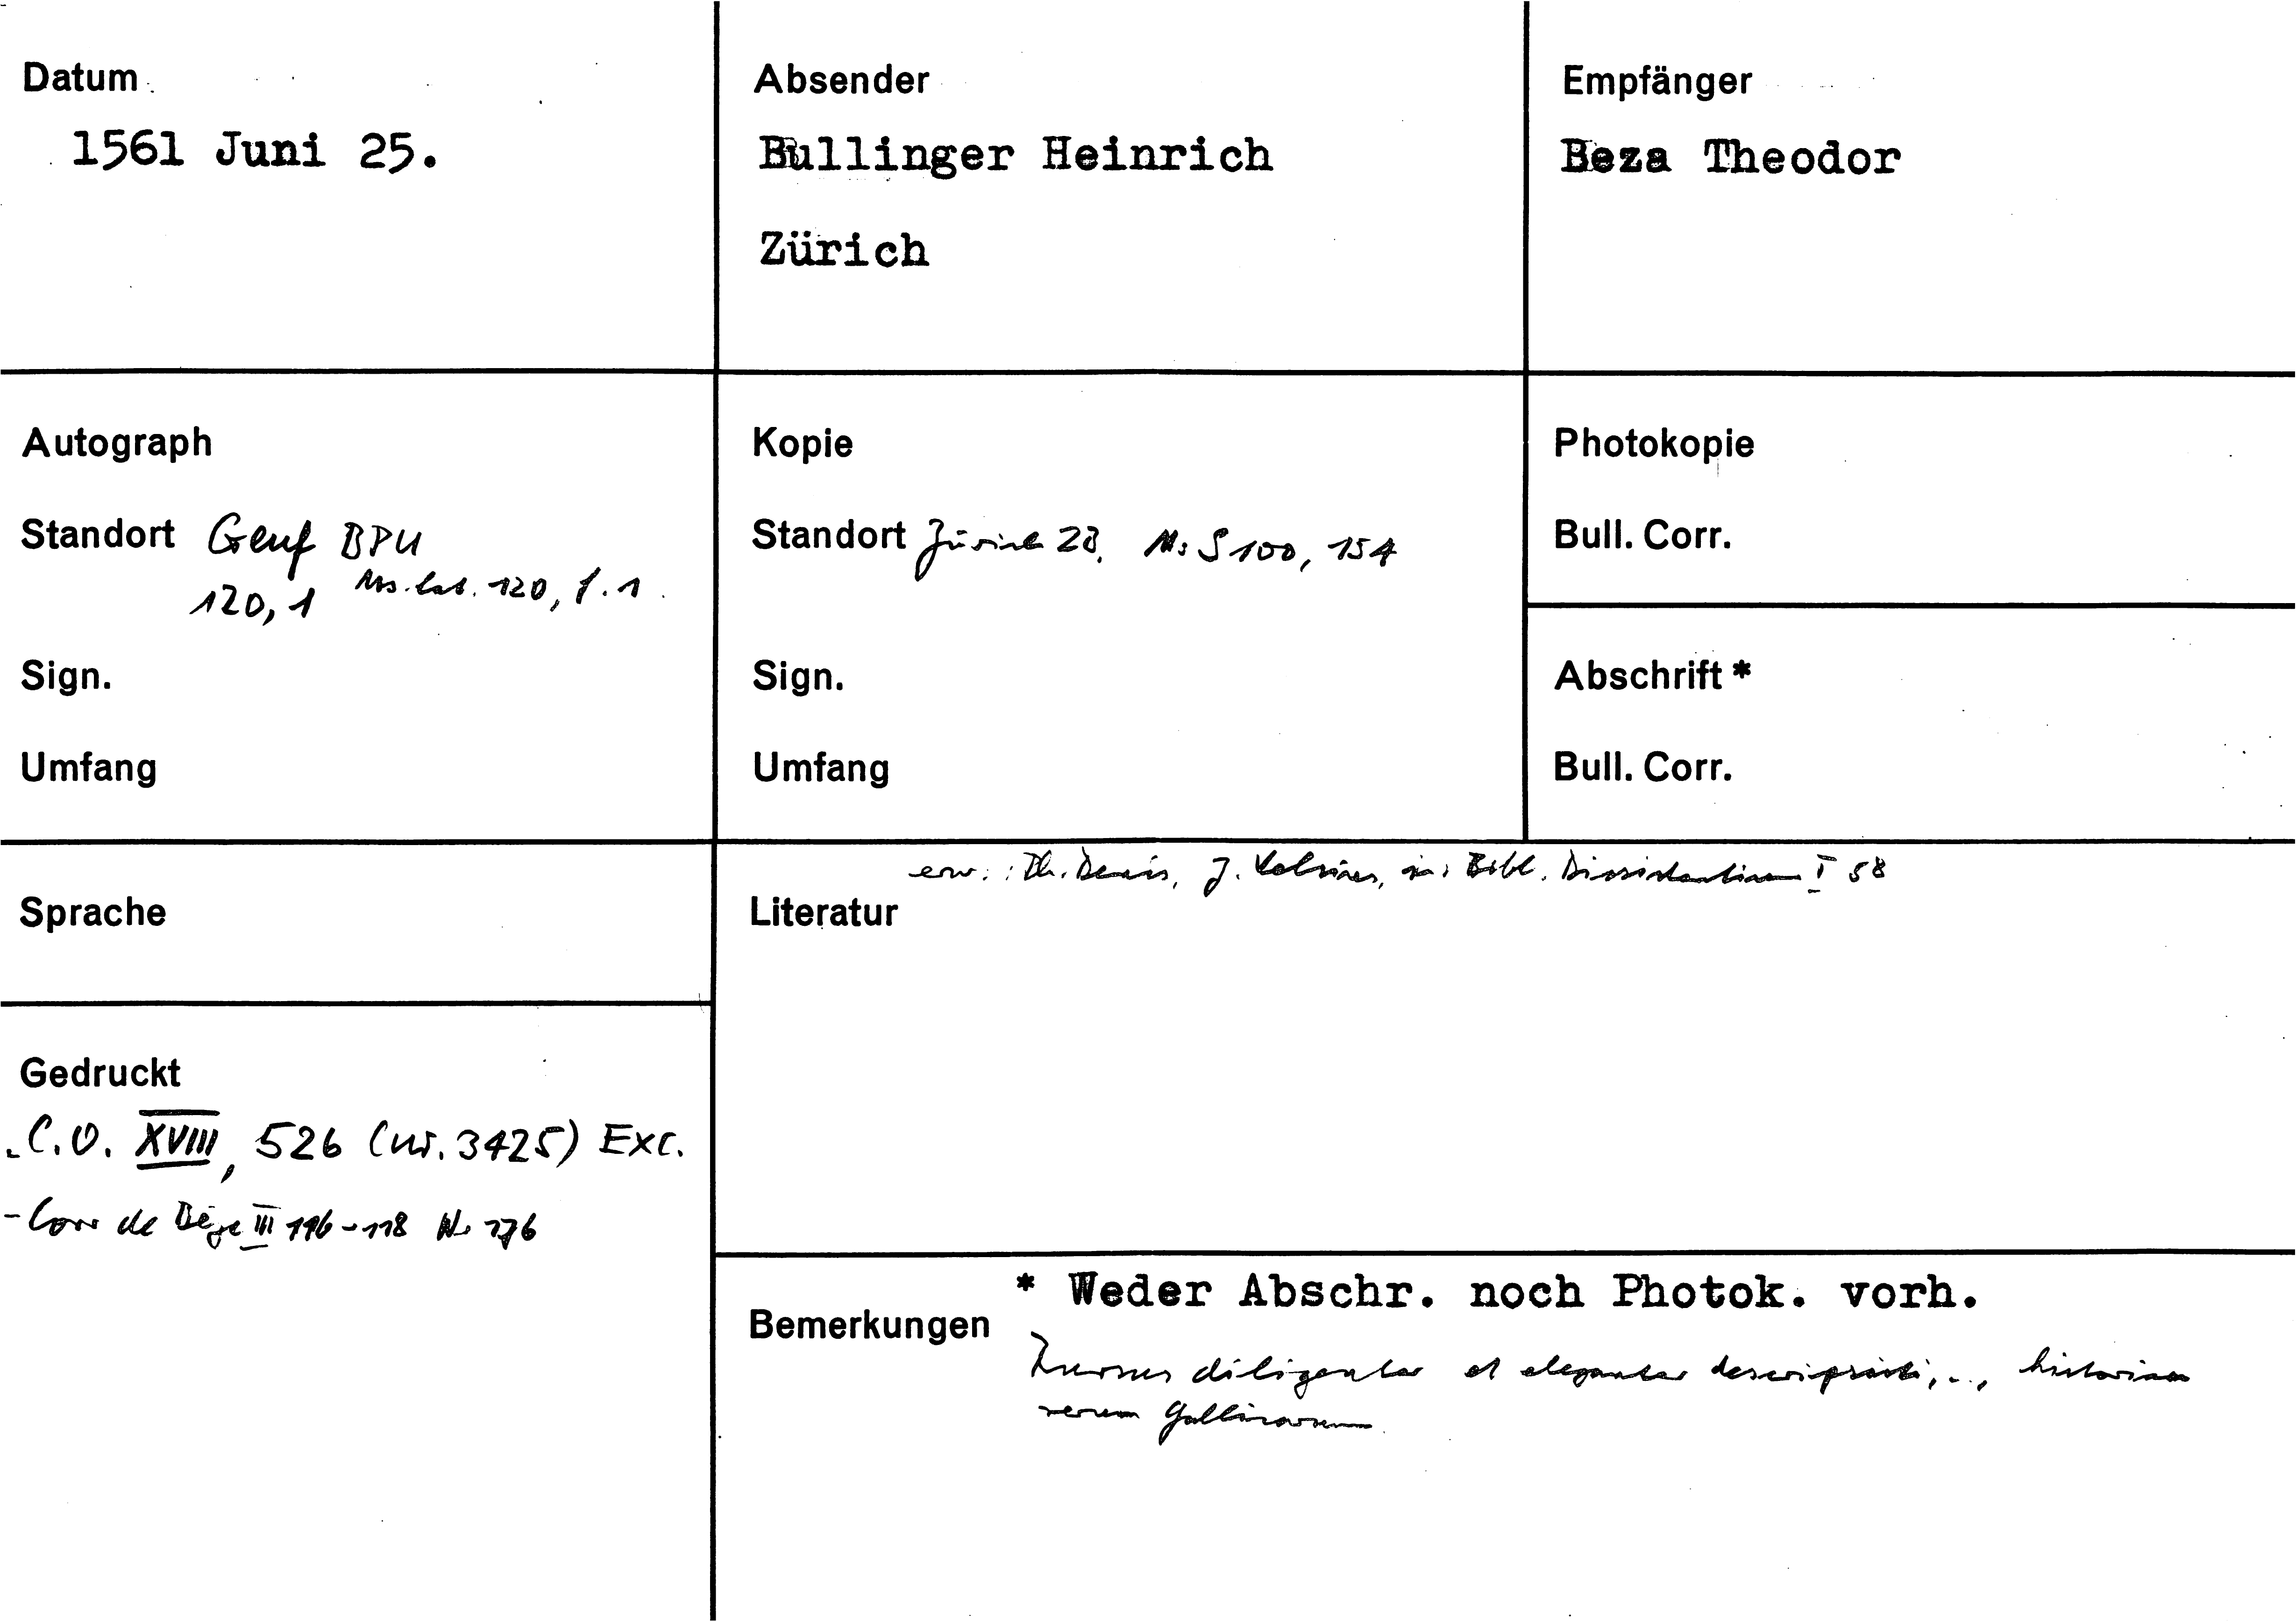 Datum
1561 Juni 25.
Absender
Bullinger Heinrich
Zürich
Empfänger
Beza Theodor
Autograph
Standort Genf BPU
120,1 Ms. lat. 120, f. 1
Sign.
Umfang
Kopie
Standort Zürich ZB, Ms S 100, 154
Sign.
Umfang
Photokopie
Bull. Corr.
Abschrift *
Bull. Corr.
Sprache
erw.: Th. Denis, J. in: Bibl. Dissidentium I 58
Literatur
Gedruckt
- C.O. XVIII, 526 (nr. 3425) Exc.
- Corr de Bèze III 116-118 No 176
* Weder Abschr. noch Photok. vorh.
Bemerkungen
diligenter et eleganter descripsisti, .., historiam
rerum Gallicarum